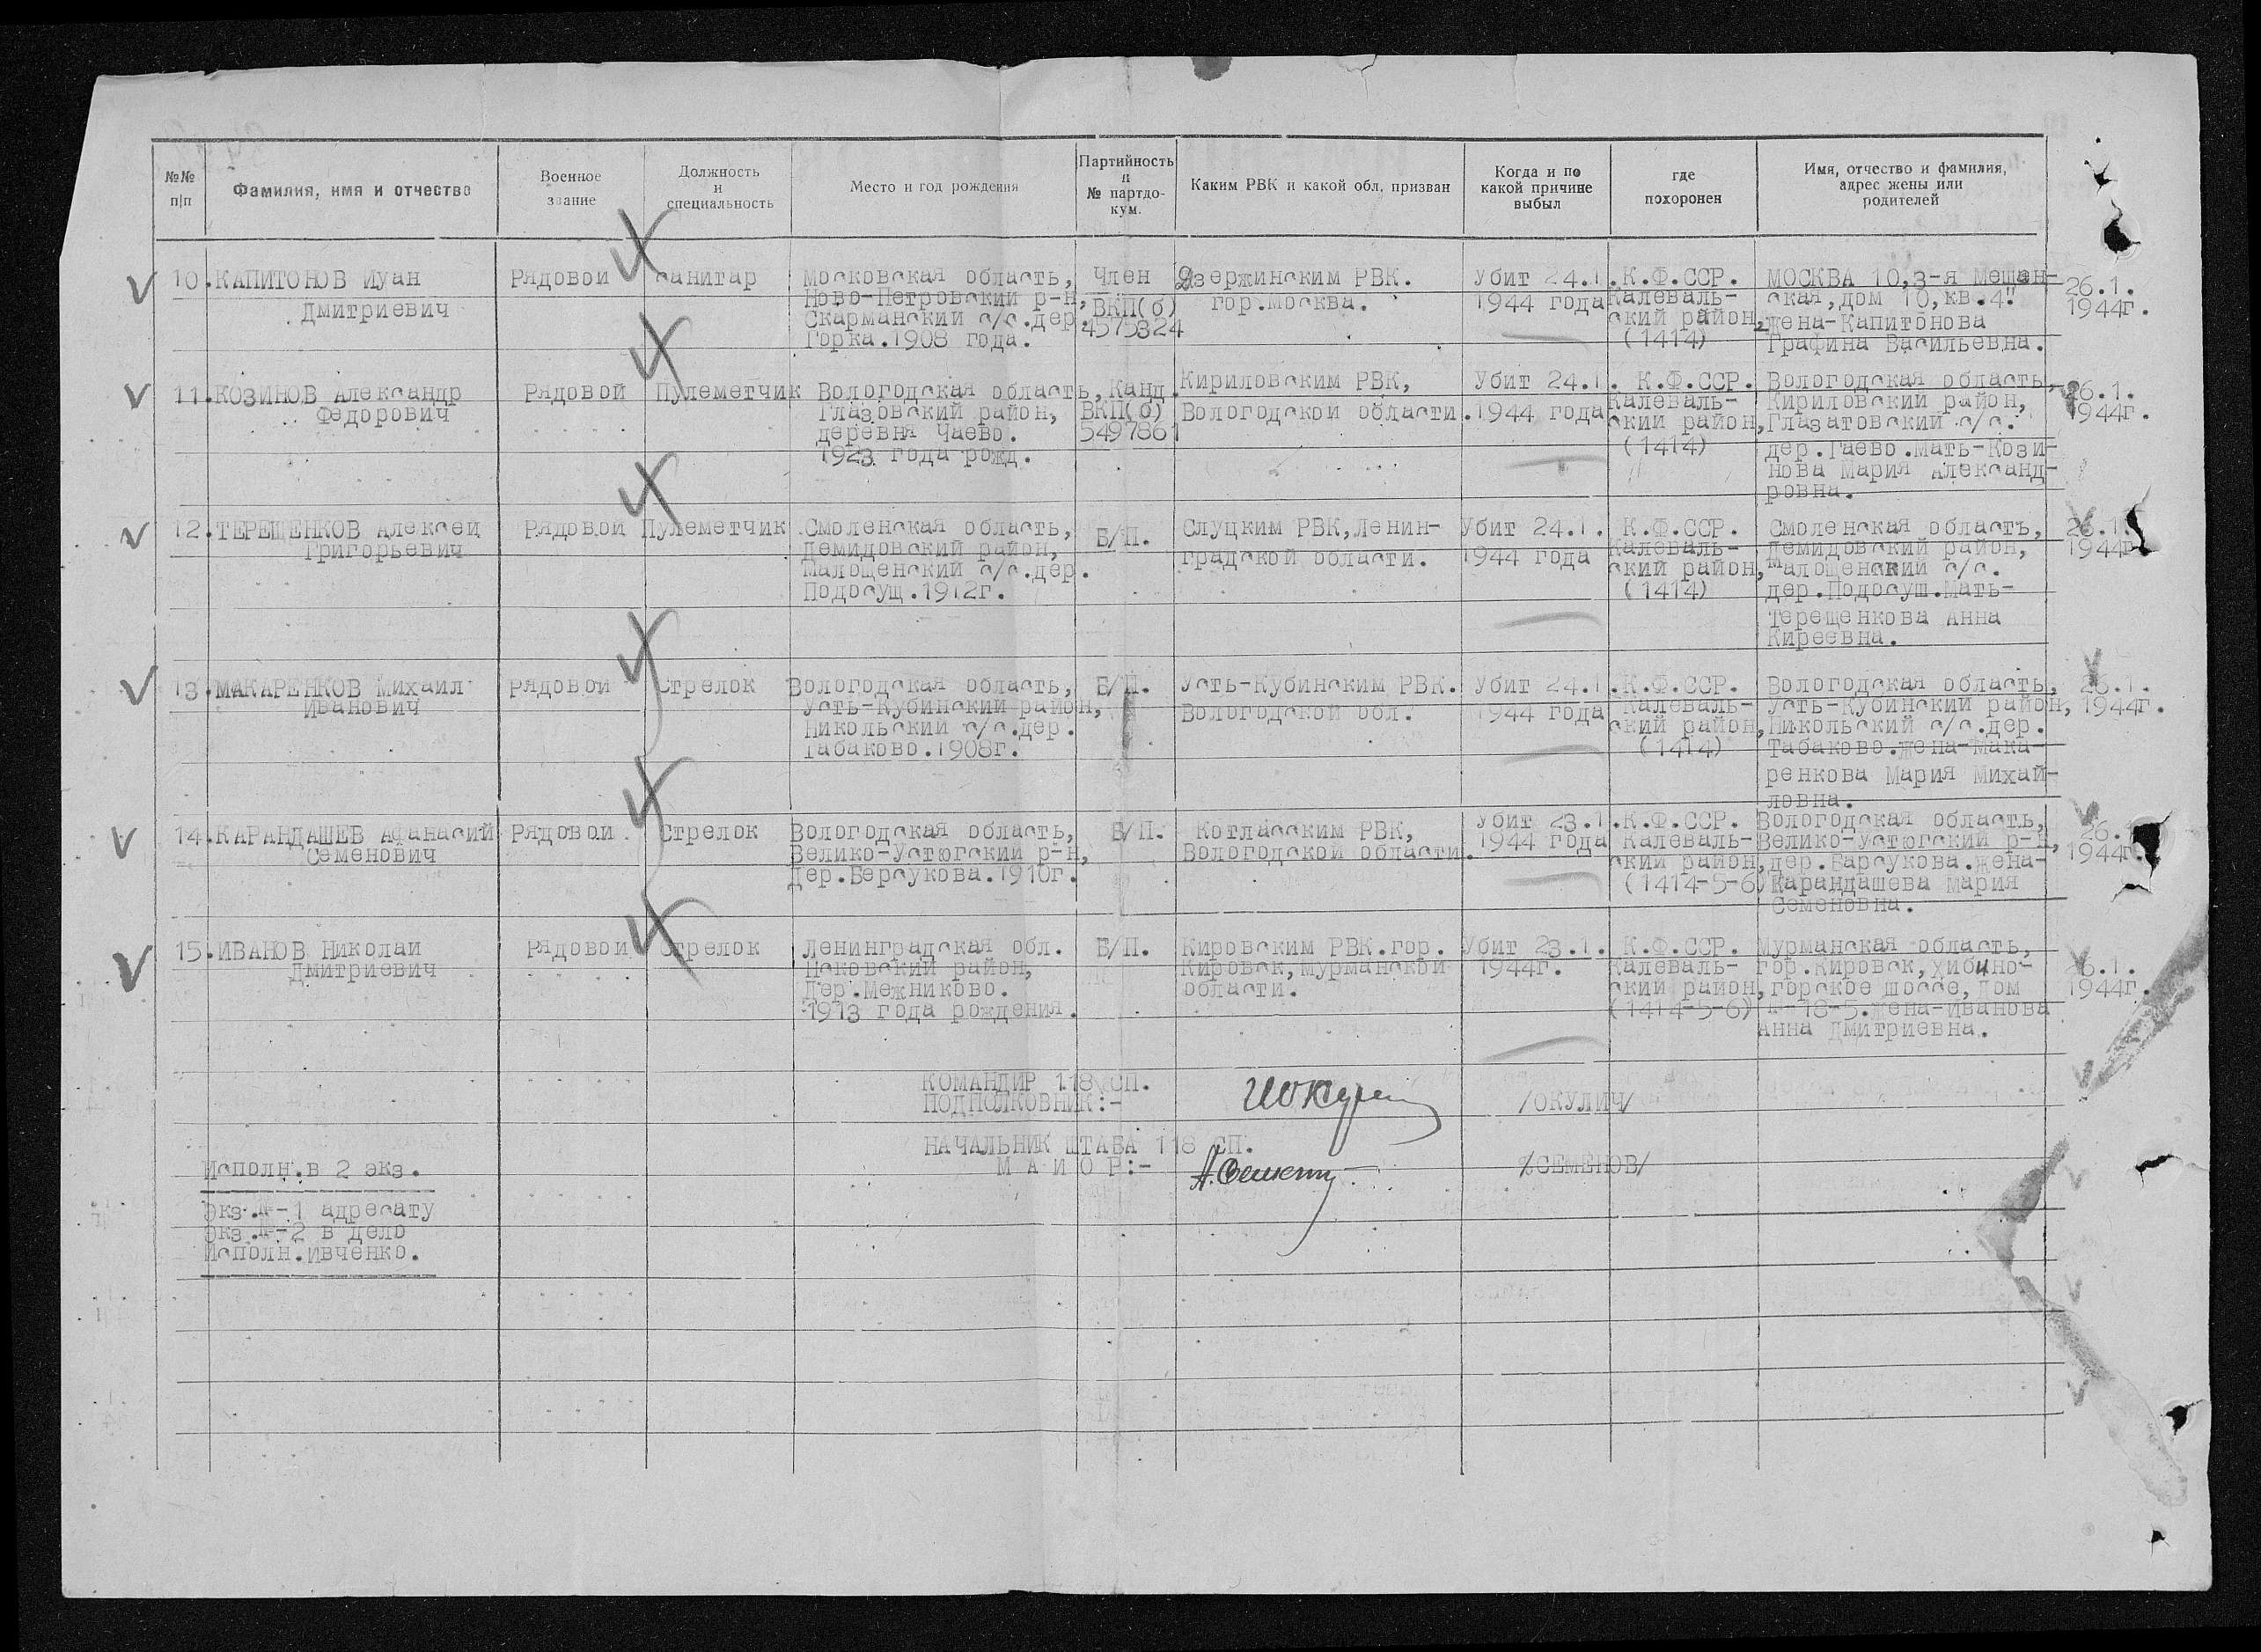 №№ п|п
Фамилия, имя и отчество
Военное звание
Должность и специальность
Место и год рождения
Партийность и № партдокум.
Каким РВК и какой обл. призван
Когда и по какой причине выбыл
где похоронен
Имя, отчество и фамилия, адрес жены или родителей
10. КАПИТОНОВ Иуан Дмитриевич
Рядовой
санитар
Московская область,
Ново-Петровский р-н,
Скарманский с/с.дер.
Горка.1908 года.
Член
ВКП(б)
4575324
Дзержинским РВК.
гор.Москва.
Убит 24.1.
1944 года
К.Ф.ССР.
Калеваль-
ский район,
(1414)
МОСКВА 10,3-я Мещан-
ская, дом 10,кв.4."
жена-Капитонова
Графина Васильевна.
26.1.
1944г.
11. КОЗИНОВ Александр
Федорович
Рядовой
Пулеметчик
Вологодская область,
Глазовский район,
деревня Чаево.
1923 года рожд.
Канд.
ВКП(б)
5497861
Кириловским РВК,
Вологодской области.
Убит 24.1.
1944 года
К.Ф.ССР.
Калеваль-
ский район,
(1414)
Вологодская область,
Кириловский район,
Глазатовский с/с.
дер.Гаево.Мать-Кози-
нова Мария Александ-
ровна.
26.1.
1944г.
12. ТЕРЕЩЕНКОВ Алексей
Григорьевич
Рядовой
Пулеметчик
Смоленская область,
Демидовский район,
Малощенский с/с.дер.
Подосущ.1912г.
Б/П.
Слуцким РВК,Ленин-
градской области.
Убит 24.1.
1944 года
К.Ф.ССР.
Калеваль-
ский район,
(1414)
Смоленская область,
Демидовский район,
Малошенский с/с.
дер.Подосуш.Мать-
Терещенкова Анна
Киреевна.
26.1.
1944г
13. МАКАРЕНКОВ Михаил
Иванович
Рядовой
Стрелок
Вологодская область,
Усть-Кубинский район,
Никольский с/с.дер.
Табаково.1908г.
Б/П.
Усть-Кубинским РВК.
Вологодской обл.
Убит 24.1.
1944 года
К.Ф.ССР.
Калеваль-
ский район,
(1414)
Вологодская область,
Усть-Кубинский район,
Никольский с/с.дер.
Табаково.жена-Мака-
ренкова Мария Михай-
ловна.
26.1.
1944г.
14. КАРАНДАШЕВ Афанасий
Семенович
Рядовой
Стрелок
Вологодская область,
Велико-Устюгский р-н,
Дер.Берсукова.1910г.
Б/П.
Котласским РВК,
Вологодской области.
Убит 23.1.
1944 года
К.Ф.ССР.
Калеваль-
ский район,
(1414-5-6)
Вологодская область,
Велико-Устюгский р-н,
дер.Барсукова.жена-
Карандашева Мария
Семеновна.
26.1
1944г.
15. ИВАНОВ Николай
Дмитриевич
Рядовой
Стрелок
Ленинградская обл.
Псковский район,
Дер.Межниково.
1913 года рождения.
Б/П.
Кировским РВК.гор.
Кировск,Мурманской
области.
Убит 23.1.
1944г.
К.Ф.ССР.
Калеваль-
ский район,
(1414-5-6)
Мурманская область,
гор.Кировск,Хибино-
горское шоссе,дом
№-18-5.жена-Иванова
Анна Дмитриевна.
26.1.
1944г.
КОМАНДИР 118 СП.
ПОДПОЛКОВНИК:-
/ОКУЛИЧ/
НАЧАЛЬНИК ШТАБА 118 СП.
М А Й О Р:-
/СЕМЕНОВ/
Исполн.в 2 экз.
Экз.№-1 адресату
Экз.№-2 в дело
Исполн.Ивченко.